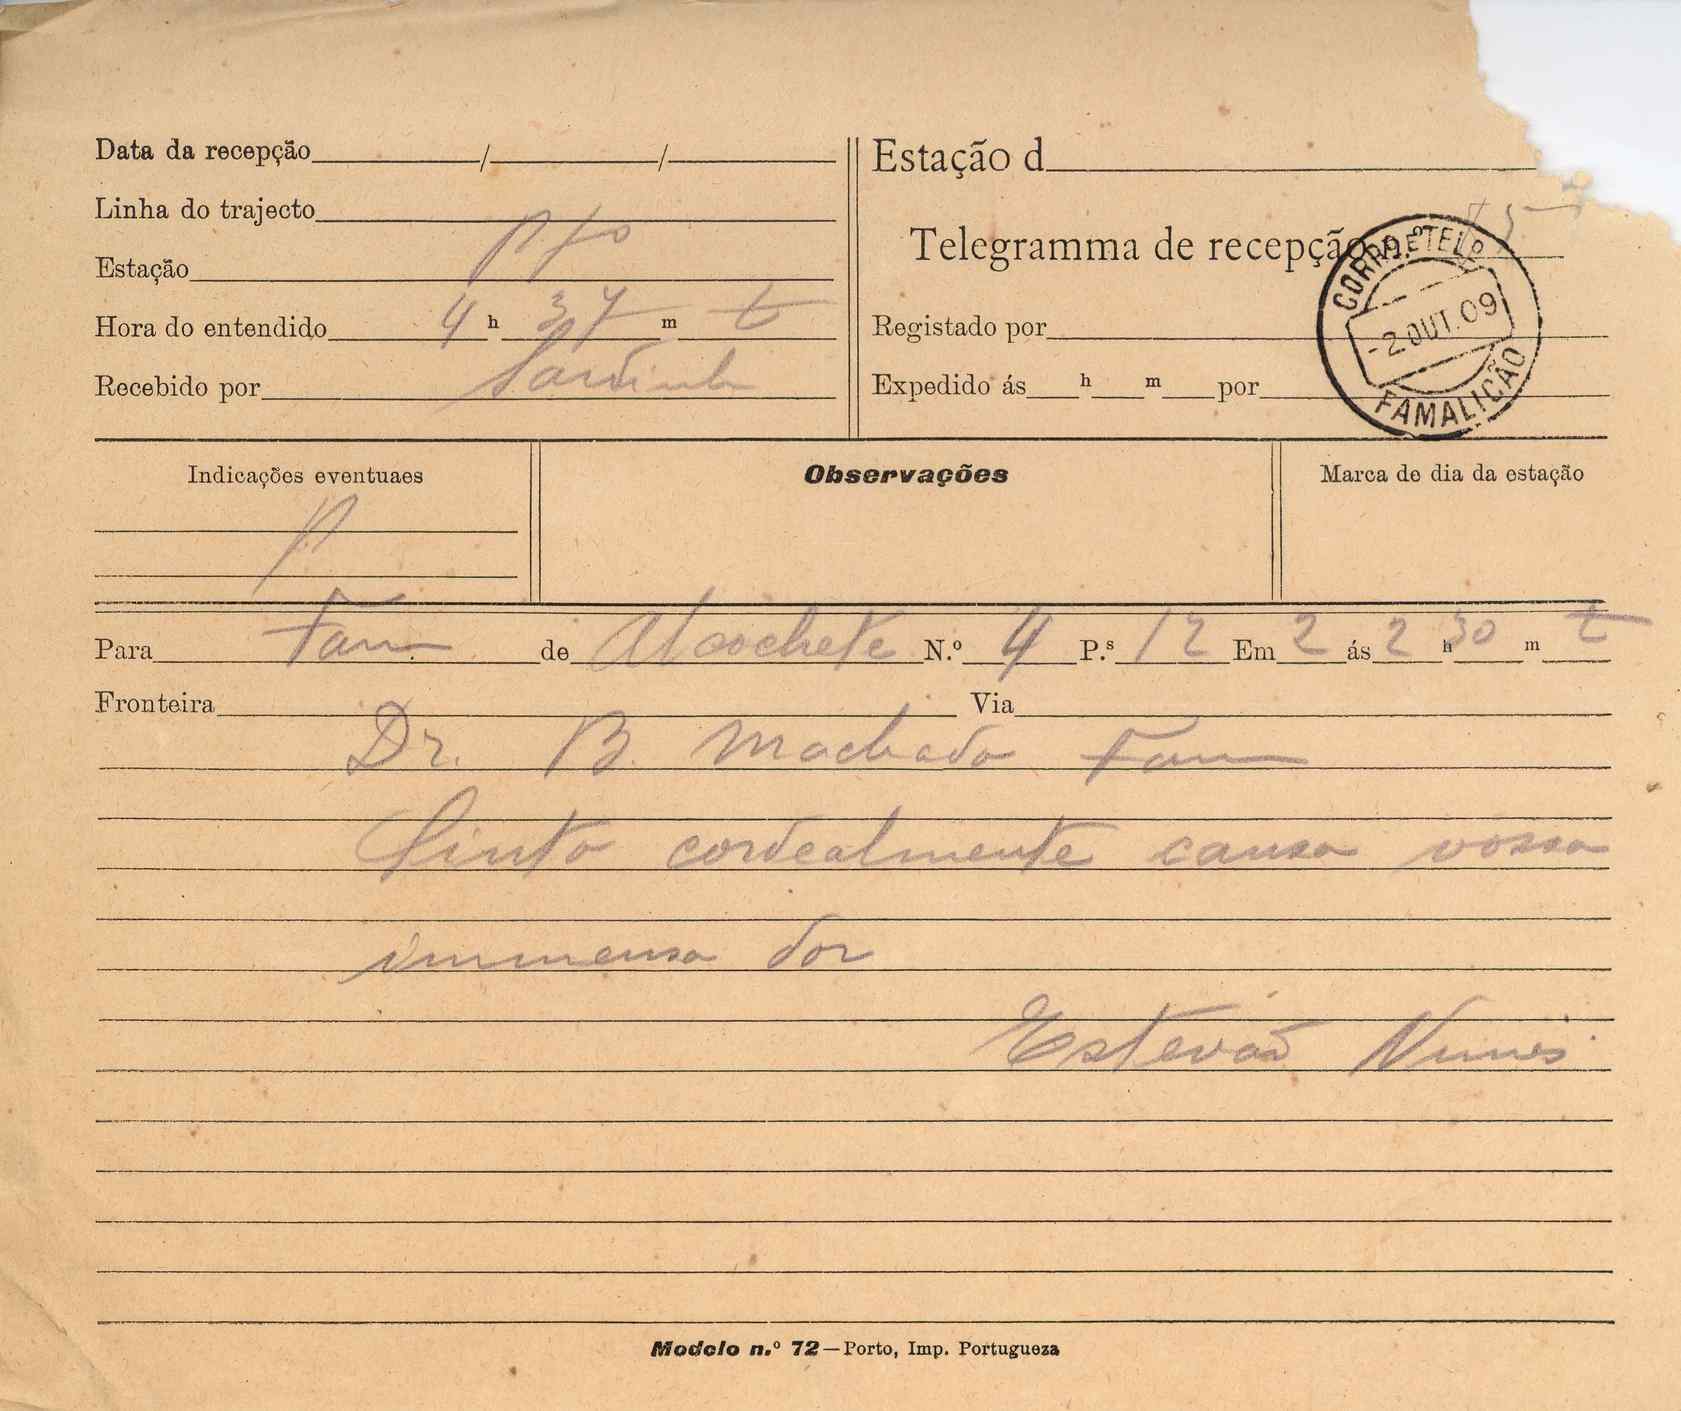 Data da recepção / /
Linha do trajecto
Estação Pto
Hora do entendido 4 h 37 m t
Recebido por Sardinha
Estação d
Telegramma de recepção n.º
Registado por
Expedido ás h m por
CORRO E TELO
-2.OUT.09
FAMALICÃO
Indicações eventuaes
P
Observações
Marca de dia da estação
Para Fam de Alcochete N.º 4 P.s 12 Em 2 ás 2 h 30 m t
Fronteira Via
Dr. B. Machado Fam
Sinto cordealmente causa vossa
immensa dor
Estevão Nunes
Modelo n.º 72—Porto, Imp. Portugueza